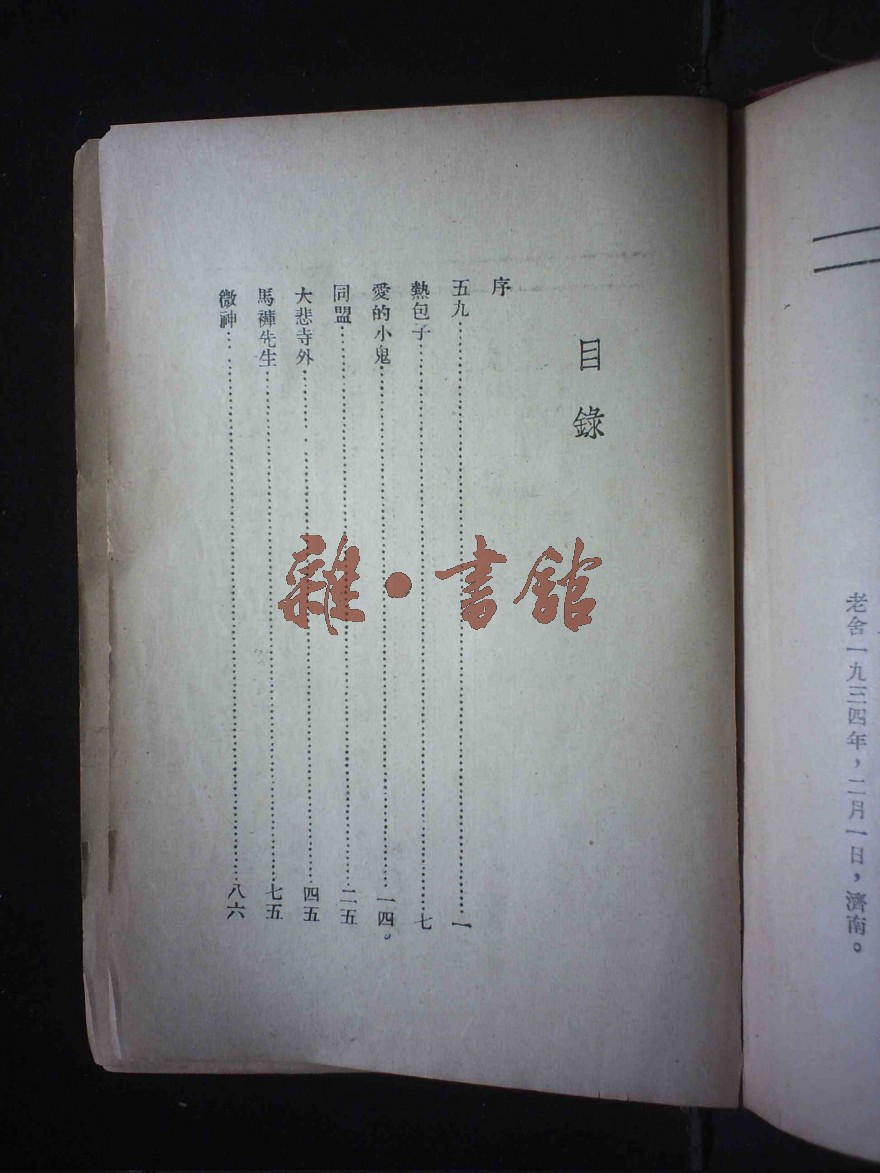 老舍一九三四年，二月一日，濟南。
目錄
序
五九……一
熱包子……七
愛的小鬼……一四。
同盟……二五
大悲寺外……四五
馬褲先生……七五
微神……八六
雜·書館